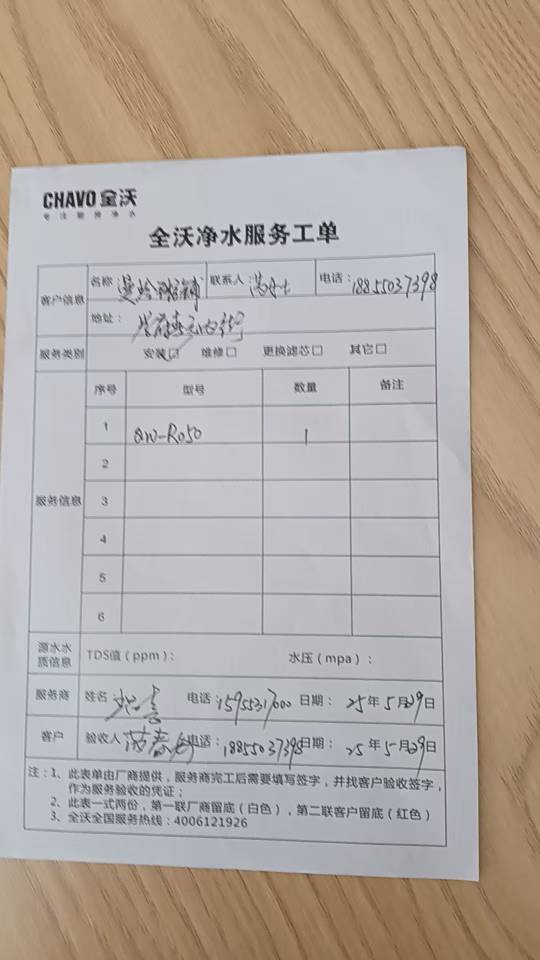 CHAVO 全沃
专注厨房净水
全沃净水服务工单
客户信息 名称 联系人 电话：18855037398
地址：
服务类别 安装☑ 维修□ 更换滤芯□ 其它□
服务信息 序号 型号 数量 备注
1 QW-RO50 1
2
3
4
5
6
源水水质信息 TDS值（ppm）： 水压（mpa）：
服务商 姓名 电话：15955317000 日期：25年5月29日
客户 验收人 电话：18855037398 日期：25年5月29日
注：1、此表单由厂商提供，服务商完工后需要填写签字，并找客户验收签字，
作为服务验收的凭证；
2、此表一式两份，第一联厂商留底（白色），第二联客户留底（红色）
3、全沃全国服务热线：4006121926